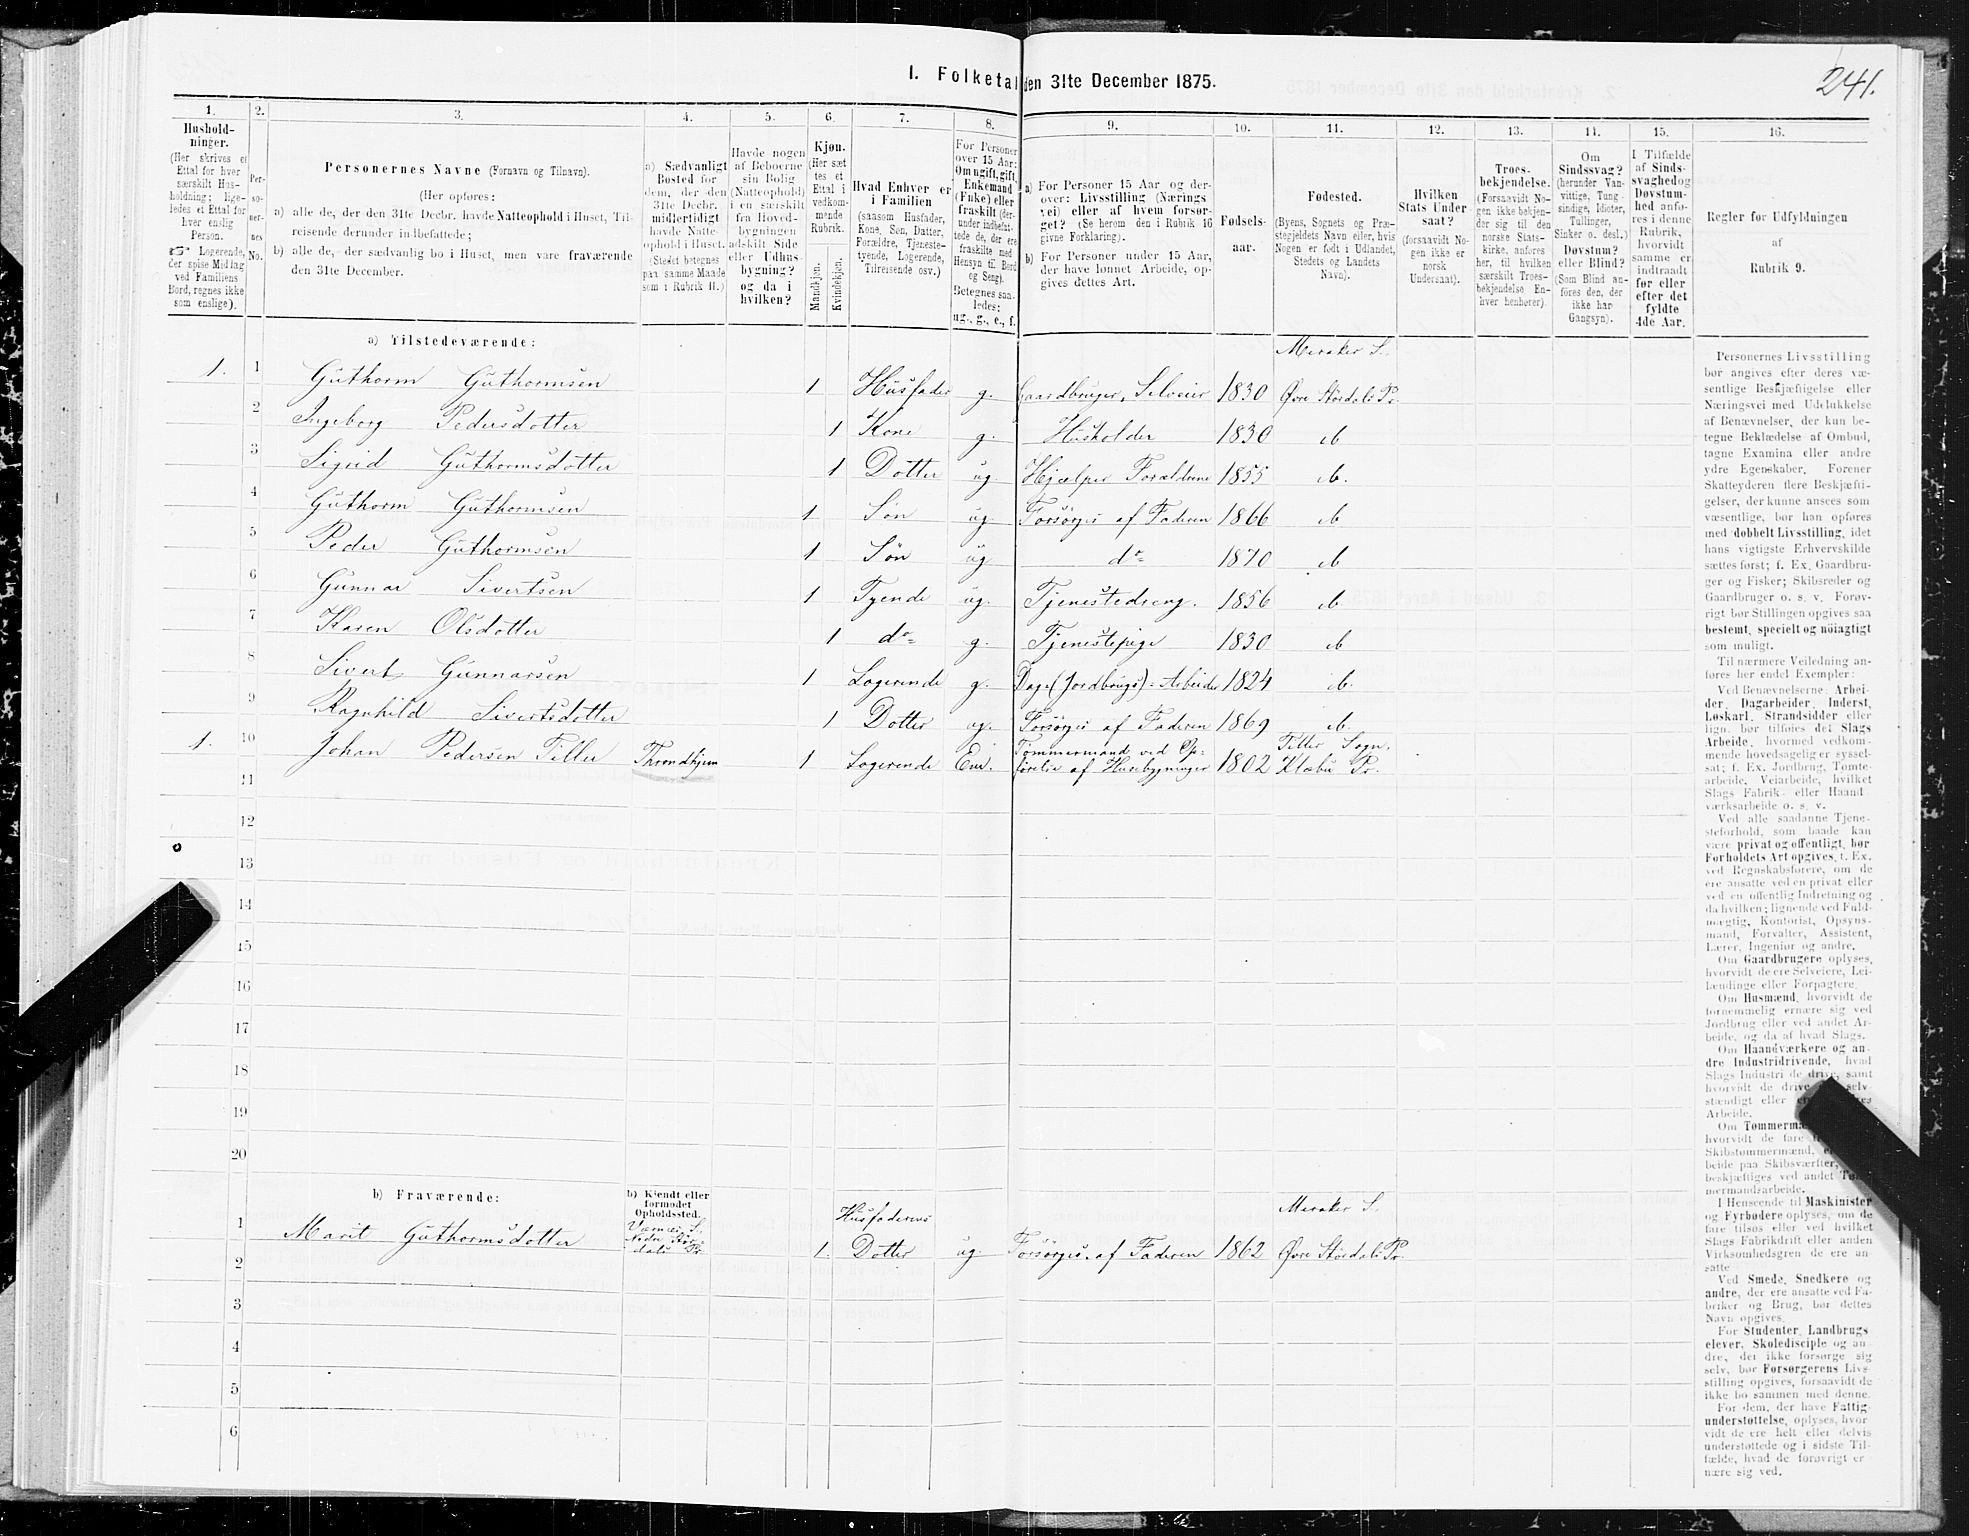 I. Folketal den 31te December 1875.
241.
1. 2. 3. 4. 5. 6. 7. 8. 9. 10. 11. 12. 13. 14. 15. 16.
Hushold-
ninger.
(Her skrives et
Ettal for hver
særskilt Hus-
holdning; lige-
ledes et Ettal for
hver enslig
Person.
☞ Logerende,
der spise Middag
ved Familiens
Bord, regnes ikke
som enslige).
Per-
so-
ner-
nes
No.
Personernes Navne (Fornavn og Tilnavn).
(Her opføres:
a) alle de, der den 31te Decbr. havde Natteophold i Huset, Til-
reisende derunder indbefattede;
b) alle de, der sædvanlig bo i Huset, men vare fraværende
den 31te December.
a) Sædvanligt
Bosted for
dem, der den
31te Decbr.
midlertidigt
havde Natte-
ophold i Huset.
(Stedet betegnes
paa samme Maade
som i Rubrik 11.)
Havde nogen
af Beboerne
sin Bolig
(Natteophold)
i en særskilt
fra Hoved-
bygningen
adskilt Side
eller Udhus-
bygning?
og da i
hvilken?
Kjøn.
(Her sæt
tes et
Ettal i
vedkom-
mende
Rubrik.
Mandkjøn.
Kvindekjøn.
Hvad Enhver er
i Familien
(saasom Husfader,
Kone, Søn, Datter,
Forældre, Tjeneste-
tyende, Logerende,
Tilreisende osv.)
For Personer
over 15 Aar:
Om ugift, gift,
Enkemand
(Enke) eller
fraskilt (der-
under indbefat-
tede de, der ere
fraskilte med
Hensyn til Bord
og Seng).
Betegnes saa-
ledes:
ug., g., e., f.
a) For Personer 15 Aar og der-
over: Livsstilling (Nærings
vei) eller af hvem forsør-
get? (Se herom den i Rubrik 16
givne Forklaring).
b) For Personer under 15 Aar,
der have lønnet Arbeide, op-
gives dettes Art.
Fødsels-
aar.
Fødested.
(Byens, Sognets og Præ-
stegjeldets Navn eller, hvis
Nogen er født i Udlandet,
Stedets og Landets
Navn).
Hvilken
Stats Under
saat?
(forsaavidt No-
gen ikke er
norsk
Undersaat).
Troes-
bekjendelse.
(Forsaavidt No-
gen ikke bekjen-
der sig til den
norske Stats-
kirke, anføres
her, til hvilken
særskilt Troes-
bekjendelse En-
hver henhører).
Om
Sindssvag?
(herunder Van-
vittige, Tung-
sindige, Idioter,
Tullinger,
Sinker o. desl.)
Døvstum?
eller Blind?
(Som Blind an-
føres den, der
ikke har
Gangsyn).
I Tilfælde
af Sinds-
svaghed og
Døvstum-
hed anfø-
res i denne
Rubrik,
hvorvidt
samme er
indtraadt
før eller
efter det
fyldte
4de Aar.
Regler for Udfyldningen
af
Rubrik 9.
a) Tilstedeværende:
Meraker S.
1. 1 Guthorm Guthormsen 1 Husfader g. Gaardbruger, Selveier 1830 Øvre Stördals Pr.
2 Ingeborg Pedersdotter 1 Kone g. Husholder 1830 do
3 Sigrid Guthormsdotter 1 Dotter ug. Hjælper Forældrene 1855 do.
4 Guthorm Guthormsen 1 Søn ug Forsørges af Faderen 1866 do
5 Peder Guthormsen 1 Søn ug do 1870 do
6 Gunnar Sivertsen 1 Tyende ug. Tjenestedreng. 1856 do
7 Karen Olsdotter 1 do g. Tjenestepige 1830 do
8 Sivert Gunnarsen 1 Logerende g. Dag(Jordbrugs)-Arbeider 1824 do.
9 Ragnhild Sivertsdotter 1 Dotter ug. Forsørges af Faderen 1869 do
1. 10 Johan Pedersen Tiller Throndhjem 1 Logerende Enk. Tømmermand ved Op-
førelse af Husebygninger 1802 Tiller Sogn.
Klæbu Pr.
11
12
13
14
15
16
17
18
19
20
b) Fraværende:
b) Kjendt eller
formodet
Opholdssted.
Husfaderens
Meraker S.
1 Marit Guthormsdotter Værnes S.
Nedre Stør-
dals Pr. 1. Dotter ug. Forsørges af Faderen 1862 Øvre Stördals Pr.
2
3
4
5
6
Personernes Livsstilling
bør angives efter deres væ-
sentlige Beskjæftigelse eller
Næringsvei med Udelukkelse
af Benævnelser, der kun be-
tegne Beklædelse af Ombud,
tagne Examina eller andre
ydre Egenskaber. Forener
Skatteyderen flere Beskjæfti-
gelser, der kunne ansees som
væsentlige, bør han opføres
med dobbelt Livsstilling, idet
hans vigtigste Erhvervskilde
sættes først; f. Ex. Gaardbru-
ger og Fisker; Skibsreder og
Gaardbruger o. s. v. Forøv-
rigt bør Stillingen opgives saa
bestemt, specielt og nøiagtigt
som muligt.
Til nærmere Veiledning an-
føres her endel Exempler:
Ved Benævnelserne: Arbei-
der, Dagarbeider, Inderst,
Løskarl, Strandsidder eller
lign. bør tilføies det Slags
Arbeide, hvormed vedkom-
mende hovedsagelig er syssel-
sat; f. Ex. Jordbrug, Tomte-
arbeide, Veiarbeide, hvilket
Slags Fabrik- eller Haand
værksarbeide o. s. v.
Ved alle saadanne Tjene-
steforhold, som baade kan
være privat og offentligt, bør
Forholdets Art opgives, t. Ex.
ved Regnskabsførere, om de
ere ansatte ved en privat eller
ved en offentlig Indretning og
da hvilken; lignende ved Fuld-
mægtig, Kontorist, Opsyns-
mand, Forvalter, Assistent,
Lærer, Ingeniør og andre.
Om Gaardbrugere oplyses,
hvorvidt de ere Selveiere, Lei-
lændinge eller Forpagtere.
Om Husmænd, hvorvidt de
fornemmelig ernære sig ved
Jordbrug eller ved andet Ar-
beide, og da af hvad Slags.
Om Haandværkere og an-
dre Industridrivende, hvad
Slags Industri de drive, samt
hvorvidt de drive selv-
stændigt eller
Arbeide.
Om
hvorvidt de fare
Skibstømmermænd,
beide paa Skibsværfter,
beskjæftiges ved andet Tøm-
mermandsarbeide.
I Henseende til Maskinister
og Fyrbødere oplyses, om de
fare tilsøs eller ved hvilket
Slags Fabrikdrift eller anden
Virksomhedsgren de ere an-
satte
Ved Smede, Snedkere og
andre, der ere ansatte ved Fa-
briker og Brug, bør dettes
Navn opgives.
For Studenter, Landbrugs
elever, Skoledisciple og an-
dre, der ikke forsørge sig
selv, bør Forsørgerens Livs-
stilling opgives, forsaavidt de
ikke bo sammen med denne.
For dem, der have Fattig-
understøttelse, oplyses, hvor
vidt de ere helt eller delvis
understøttede og i sidste Til-
fælde, hvad de forøvrigt er
nære sig ved.